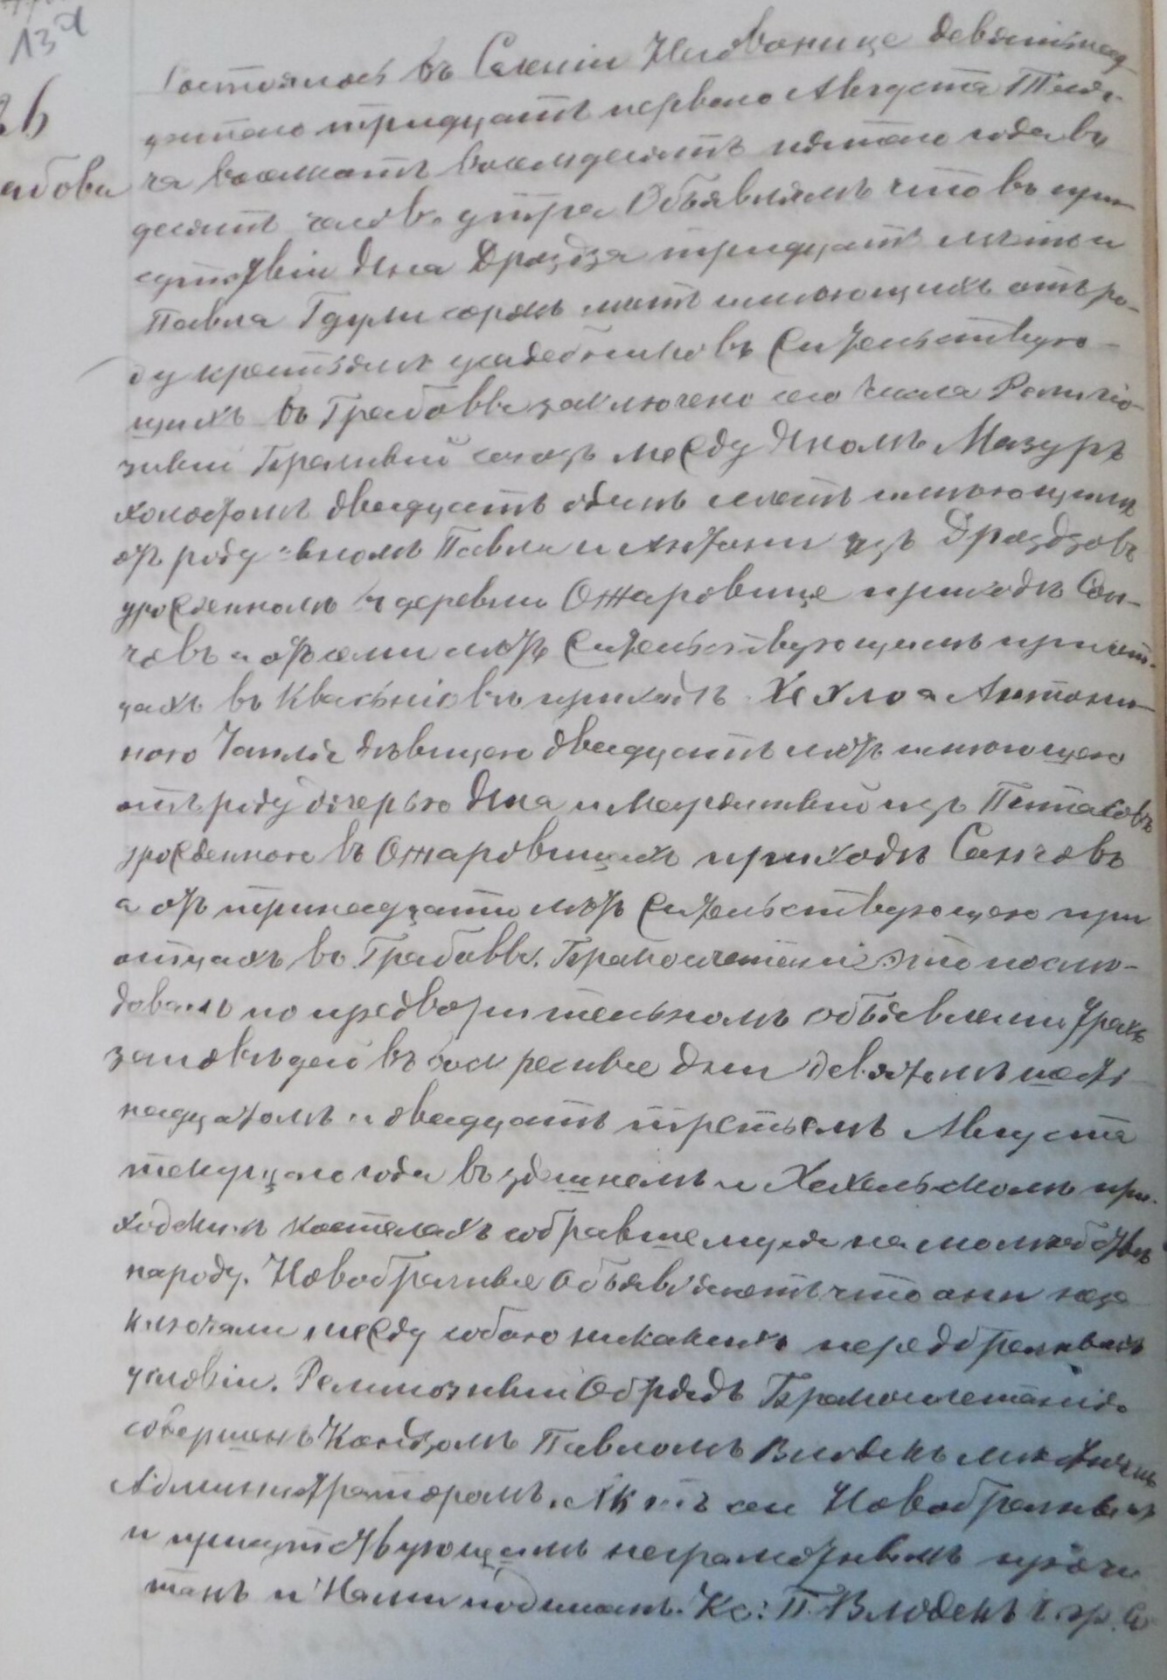 13
26
абова
Состоялось въ Селеніи Чижовинице девятнад-
цатаго тридцать перваго Августа Тыся-
ча восемсотъ восемдесятъ пятаго года въ
десять часовъ утра Объявляемъ что въ при-
сутствіи Яна Дроздза тридцать лѣтъ и
Павла Гдули сорокъ лѣтъ имѣющихъ отъ ро-
ду крестьянъ усадебниковъ жительствую-
щихъ въ Грабовѣ заключено сего числа Религіо-
зный Брачный союзъ между Яномъ Мазуръ
холостымъ двадцать одинъ лѣтъ имѣющимъ
отъ роду сыномъ Павла и Антони изъ Дроздзовъ
урожденномъ въ деревни Ожаровице приходѣ Сон-
човъ а отъ семи лѣтъ жительствующимъ при от-
цахъ въ Квасніовѣ приходѣ Хехло а Антони-
ною Чапля дѣвицею двадцать лѣтъ имѣющею
отъ роду дочерью Яна и Маріанны изъ Петаковъ
урожденною въ Ожаровицахъ приходѣ Сончовъ
а отъ тринадцати лѣтъ жительствующею при
отцахъ въ Грабовѣ. Бракосочетаніе это послѣ-
довало по предворительномъ объявленіи трехъ
заповѣдей въ воскресные дни девятомъ шест-
надцатомъ и двадцать третьемъ Августа
текущаго года въ здѣшнемъ и Хехельскомъ при-
ходскихъ костелахъ собравшемуся на молитвы
народу. Новобрачные объявляютъ что они неза-
ключали между собою никакихъ передбрачныхъ
условіи. Религіозный Обрядъ Бракосочетанія
совершенъ Ксендзомъ Павломъ
Администраторомъ. Актъ сеи Новобрачнымъ
и присутствующимъ неграмотнымъ прочи-
танъ и Нами подписанъ. Кс: П.